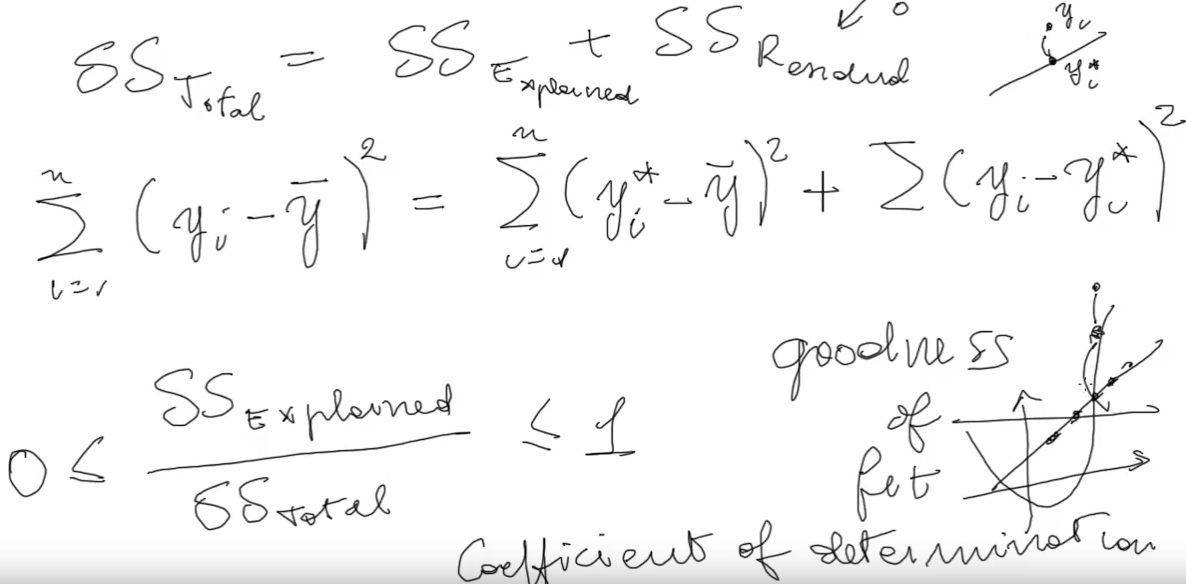 SS Total = SS Explained + SS Residual
0
y_i
y_i*
n n
∑ (y_i - ȳ)² = ∑ (y_i* - ȳ)² + ∑ (y_i - y_i*)²
i=1 i=1
0 ≤ SS Explained / SS Total ≤ 1
goodness
of
fit
Coefficient of determination